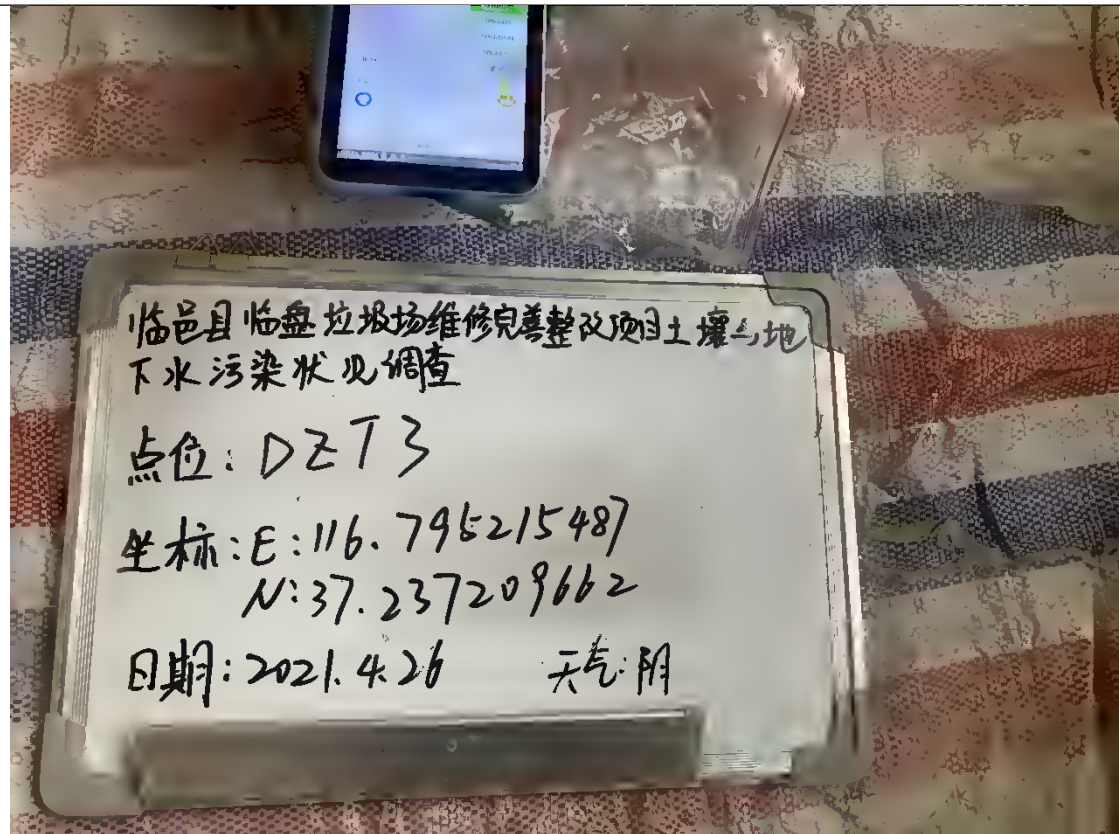 临邑县临盘垃圾场维修完善整改项目土壤与地
下水污染状况调查
点位:DZT3
坐标:E:116.795215487
N:37.237209662
日期:2021.4.26 天气:阴